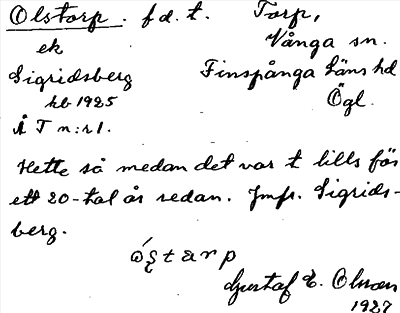 Olstorp . f d. t. Torp,
ek Vånga sn.
Sigridsberg Finspånga läns hd
hb 1925 Ögl.
Å T n:r 1.
Hette så medan det var t lills för
ett 20-tal år sedan. Jmfr. Sigrids-
berg.
Gustaf E. Olsson
1927